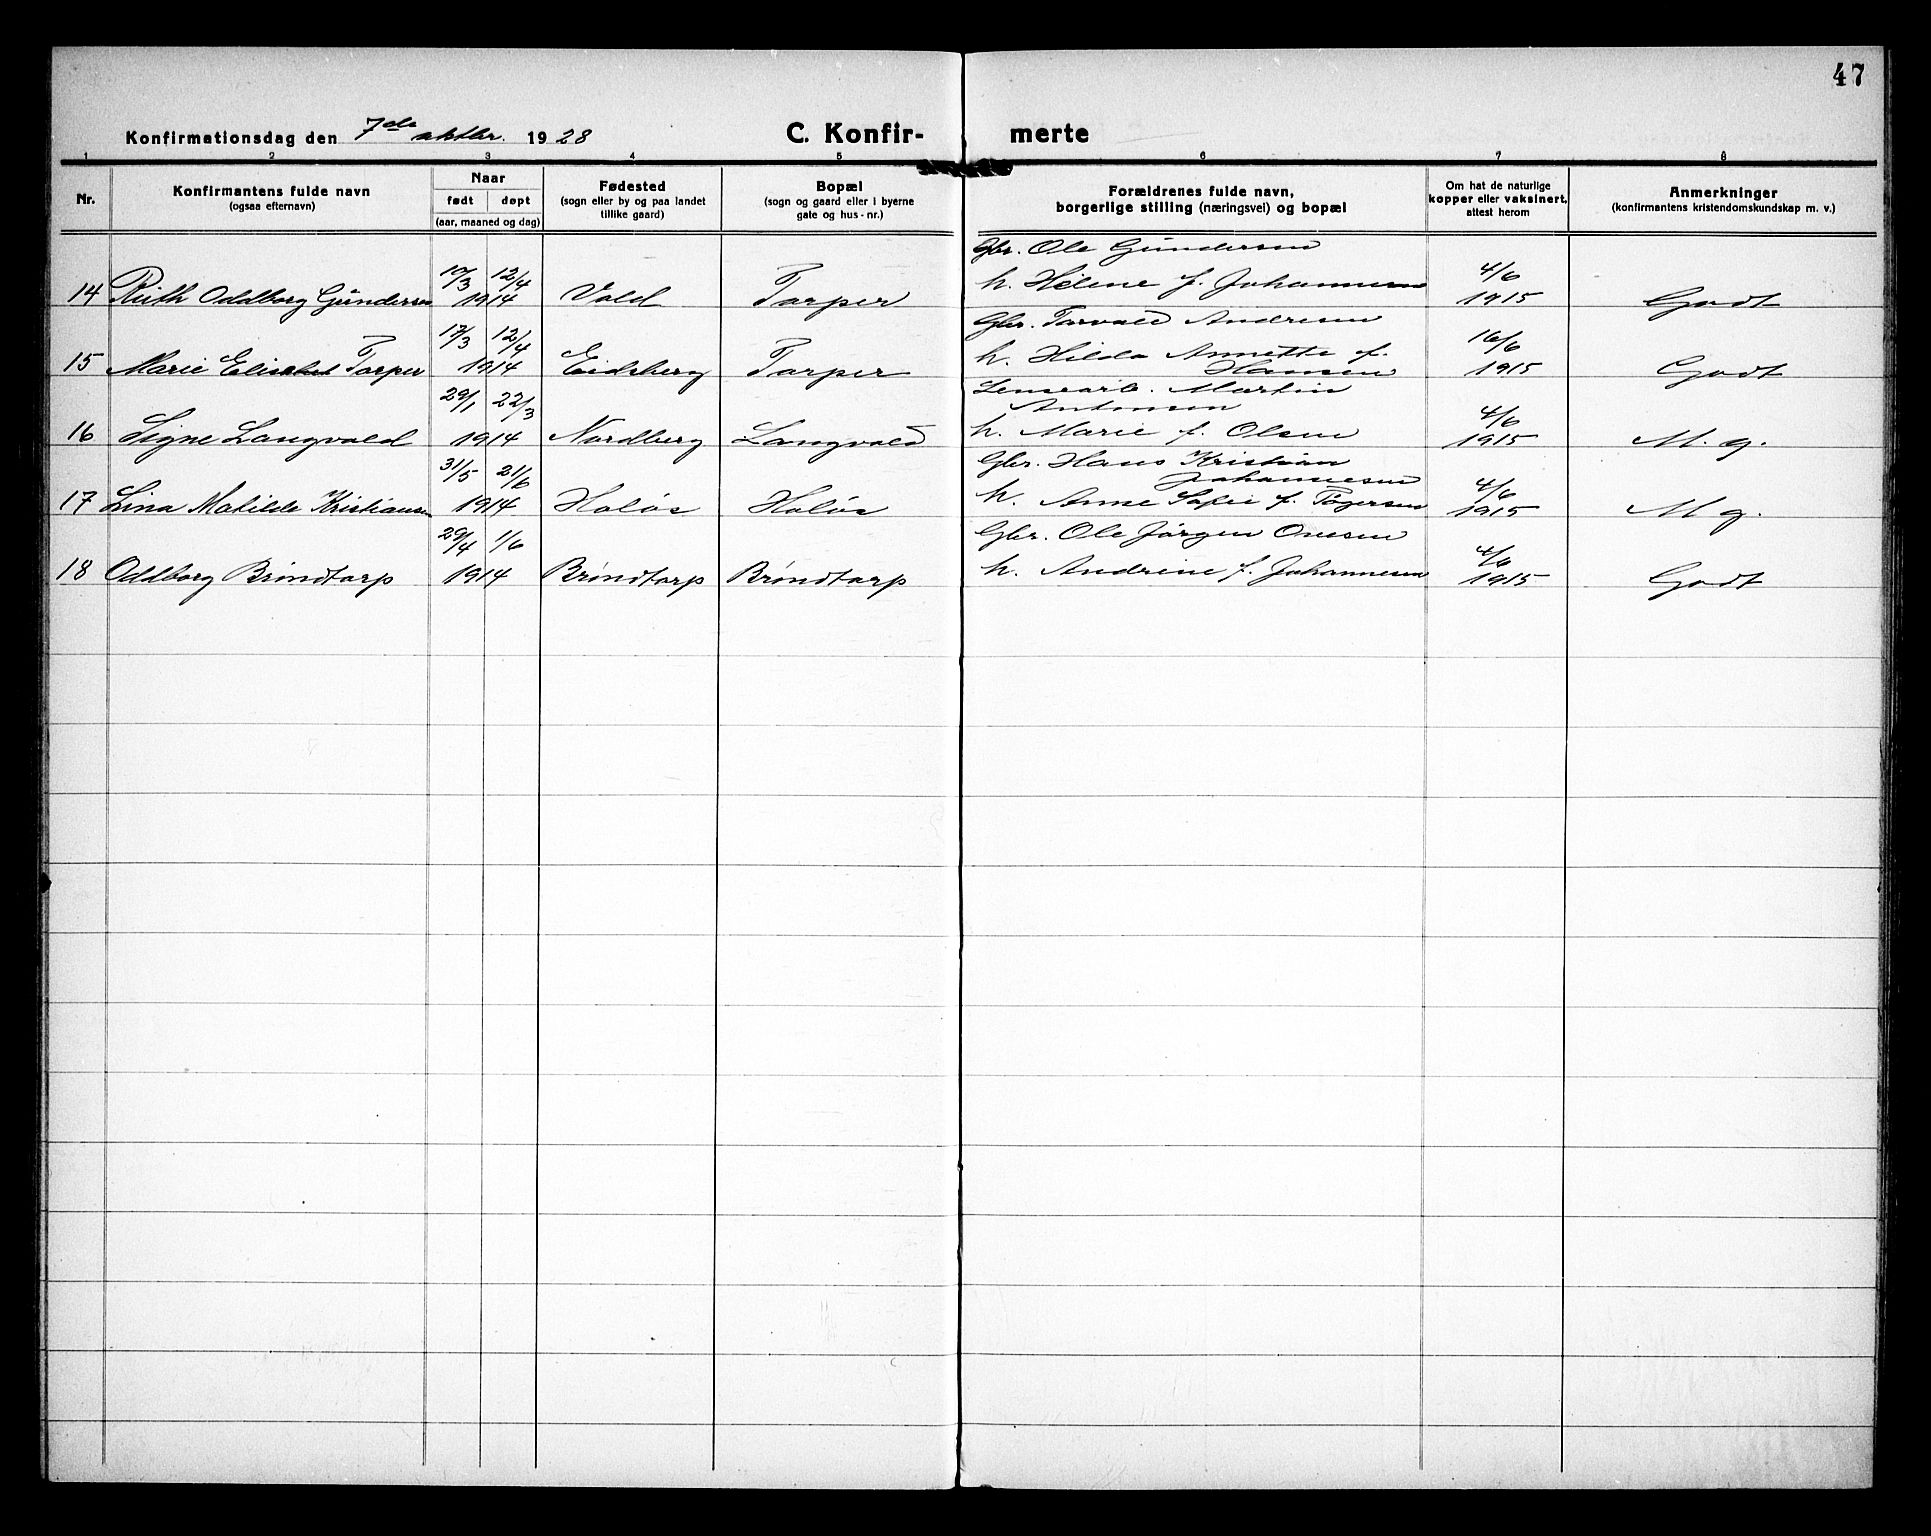 47
Konfirmationsdag den 7de oktbr. 1928 C. Konfir- merte
1 2 3 4 5 6 7 8
Nr. Konfirmantens fulde navn (ogsaa efternavn) Naar født døpt (aar, maaned og dag) Fødested (sogn eller by og paa landet tillike gaard) Bopæl (sogn og gaard eller i byerne gate og hus-nr.) Forældrenes fulde navn, borgerlige stilling (næringsvei) og bopæl Om hat de naturlige kopper eller vaksinert, attest herom Anmerkninger (konfirmantens kristendomskundskap m. v.)
Gbr. Ole Gundersen
14 Ruth Oddborg Gundersen 17/3 12/4 1914 Vold Torper h. Helene f. Johannesen 4/6 1915 Godt
Gbr. Torvald Andresen
15 Marie Elisabet Torper 17/3 12/4 1914 Eidsberg Torper h. Hilda Annette f. Hansen 16/6 1915 Godt
Martin Antonsen
16 Signe Langvold 29/1 22/3 1914 Nordberg Langvold h. Marie f. Olsen 4/6 1915 M. g.
Gbr. Hans Kristian Johannesen
17 Lina Matilde Kristiansen 31/5 21/6 1914 Holøs Holøs h. Anne Sofie f. Tøgersen 4/6 1915 M g.
Gbr. Ole Jørgen Onesen
18 Oddborg Brøndtorp 29/4 1/6 1914 Brøndtorp Brøndtorp h. Andrine f. Johannesen 4/6 1915 Godt